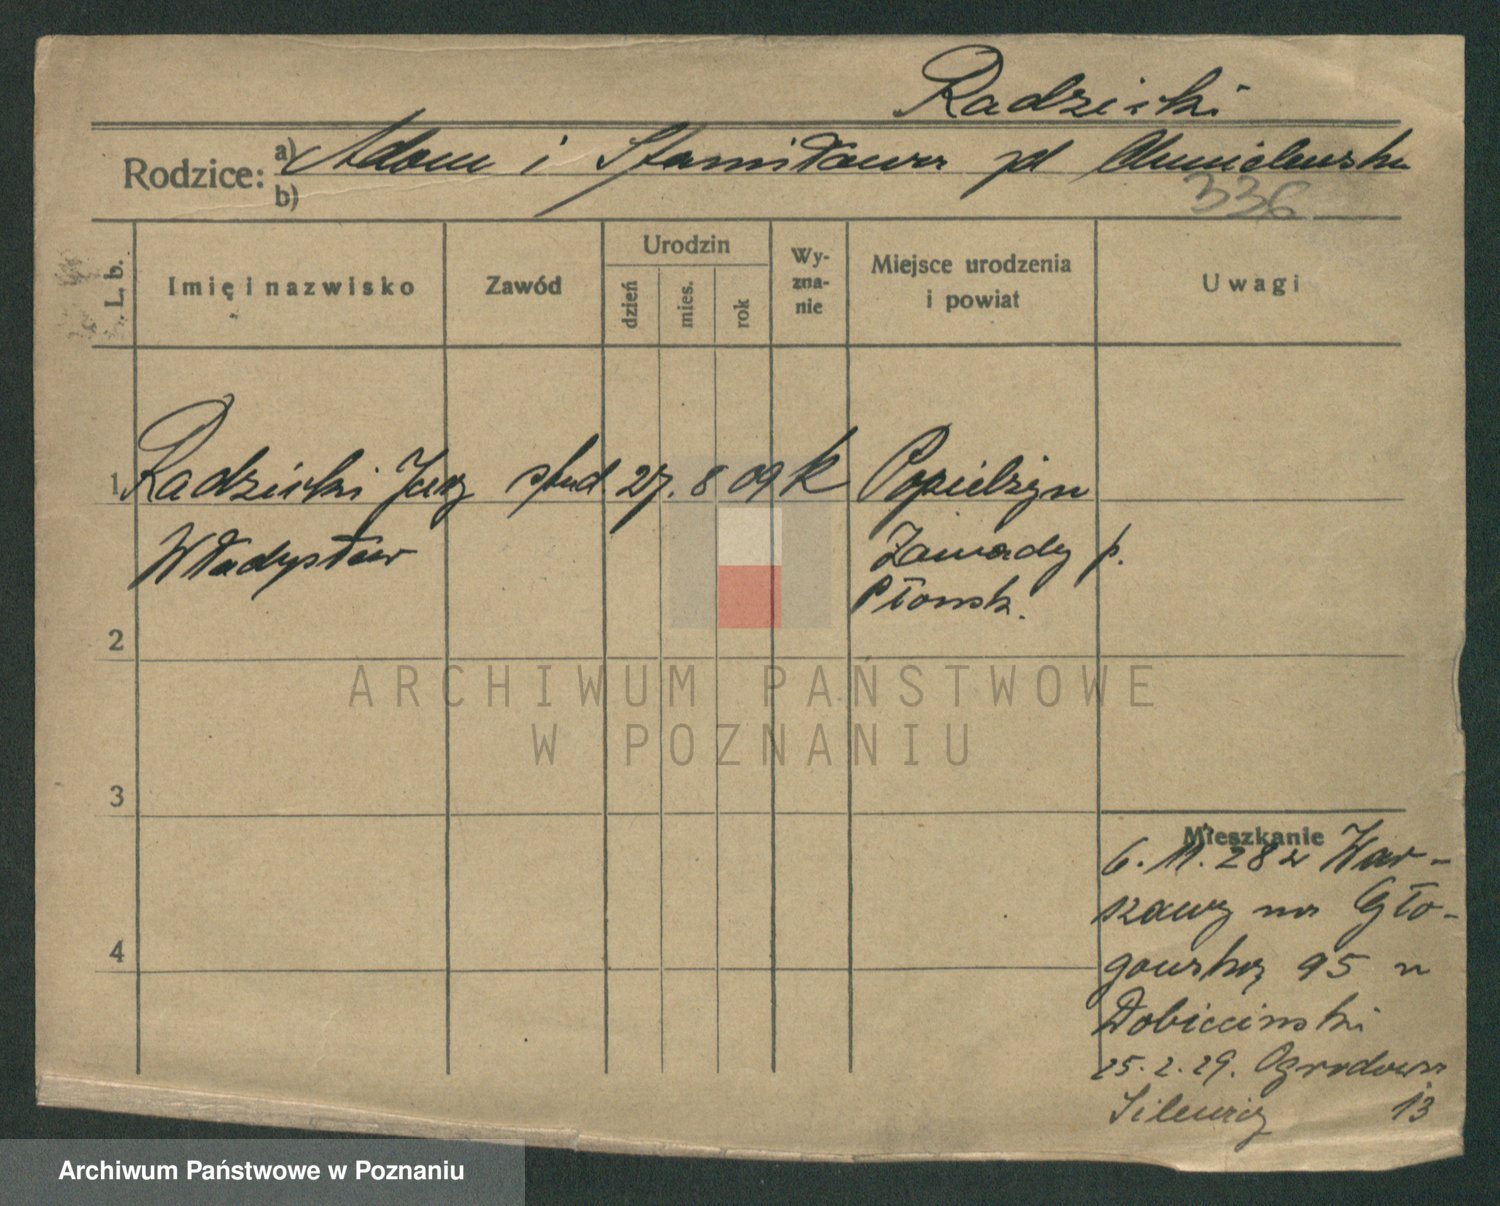 Radzicki
Rodzice: a) Adam i Stanisława zd Chmielewska
b)
336
L. b.
Imię i nazwisko
Zawód
Urodzin
dzień
mies.
rok
Wy-
zna-
nie
Miejsce urodzenia
i powiat
Uwagi
1 Radzicki Jerzy stud. 27. 8 09 k Popielżyn
Władysław Zawady p.
Płonsk.
2
3
4
Mieszkanie
6. 11. 28 z War-
szawy na Gło-
gowską 95 u
25. 2. 29. Ogrodowa
13
ARCHIWUM PAŃSTWOWE
W POZNANIU
Archiwum Państwowe w Poznaniu